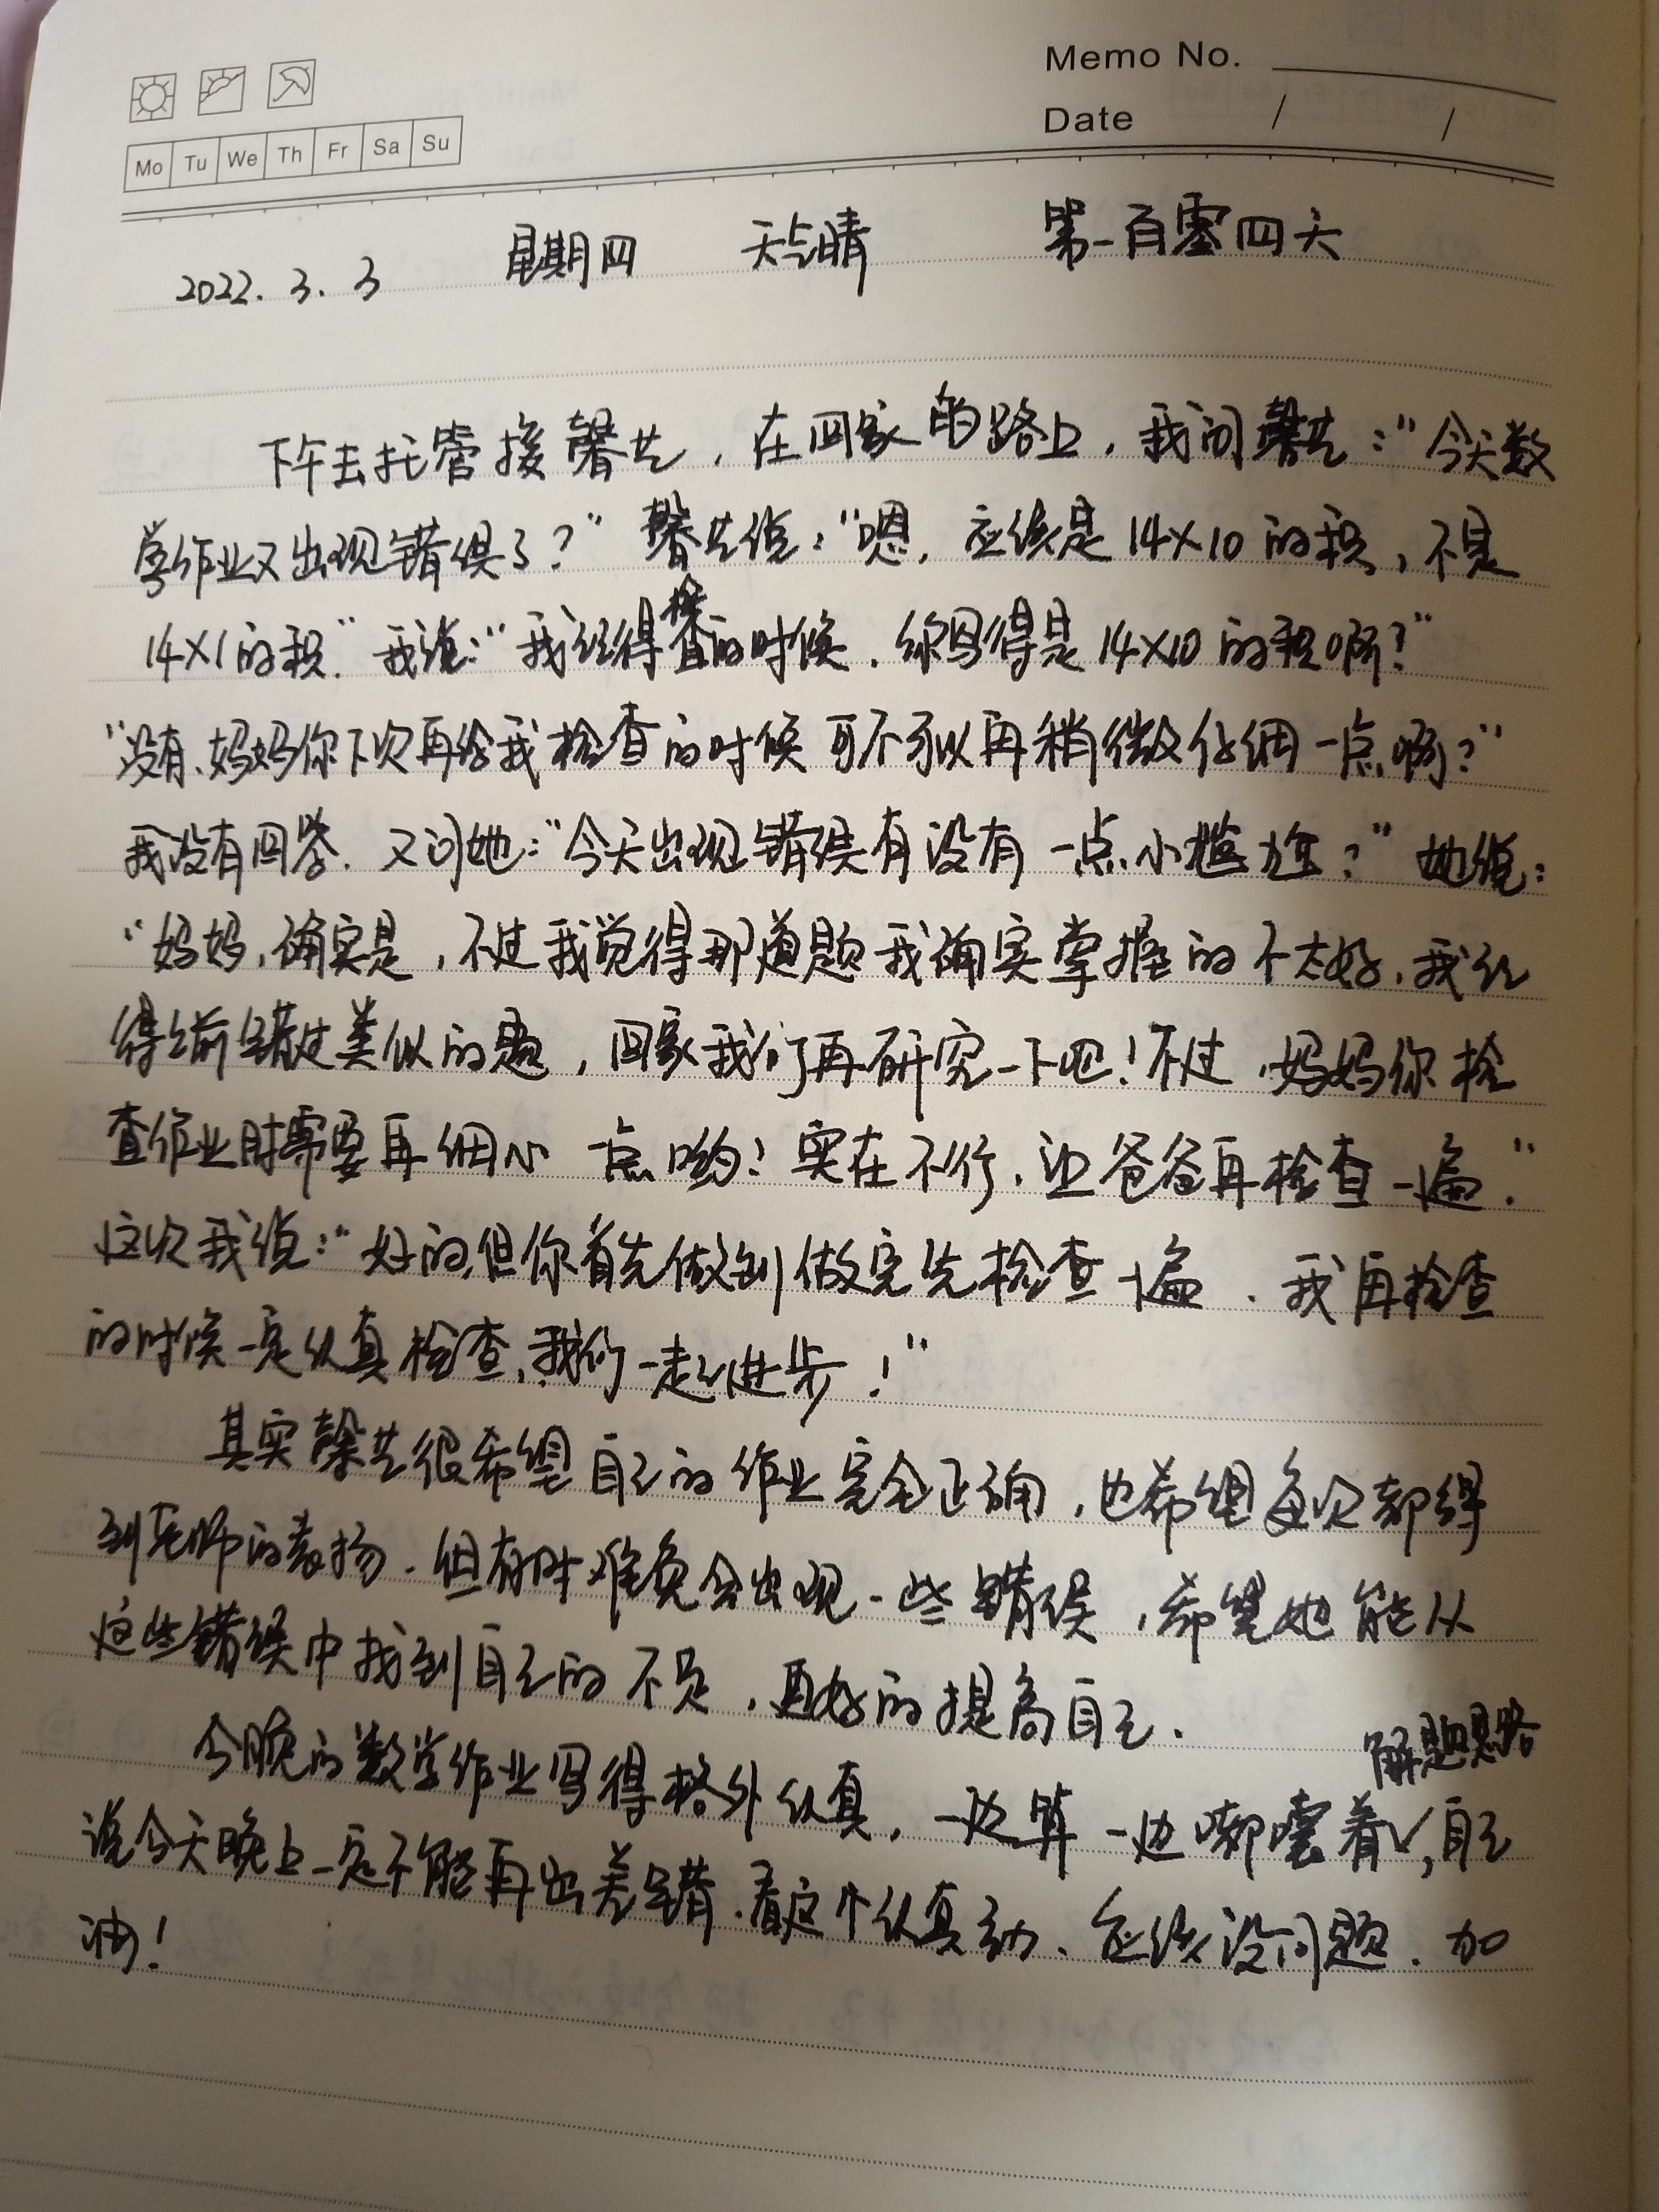 Memo No.
Date / /
Mo Tu We Th Fr Sa Su
2022.3.3 星期四 天气晴 第一百零四天
下午去托管接馨艺，在回家的路上，我问馨艺：“今天数
学作业又出现错误了？”馨艺说：“嗯，应该是14×10的积，不是
14×1的积”我说：“我记得检查的时候，你写得是14×10的积啊？”
“没有、妈妈你下次再给我检查的时候可不可以再稍微仔细一点啊？”
我没有回答．又问她：“今天出现错误有没有一点小尴尬？”她说：
“妈妈，确实是，不过我觉得那道题我确实掌握的不太好，我记
得之前错过类似的题，回家我们再研究一下吧！不过，妈妈你检
查作业时需要再细心一点哟！实在不行，让爸爸再检查一遍．”
这次我说：“好的，但你首先做到做完先检查一遍．我再检查
的时候一定认真检查，我们一起进步！”
其实馨艺很希望自己的作业完全正确，也希望每次都得
到老师的表扬．但有时难免会出现一些错误，希望她能从
这些错误中找到自己的不足，更好的提高自己．
今晚的数学作业写得格外认真，一边算一边嘟囔着解题思路，自己
说今天晚上一定不能再出差错．看这个认真劲、应该没问题．加
油！